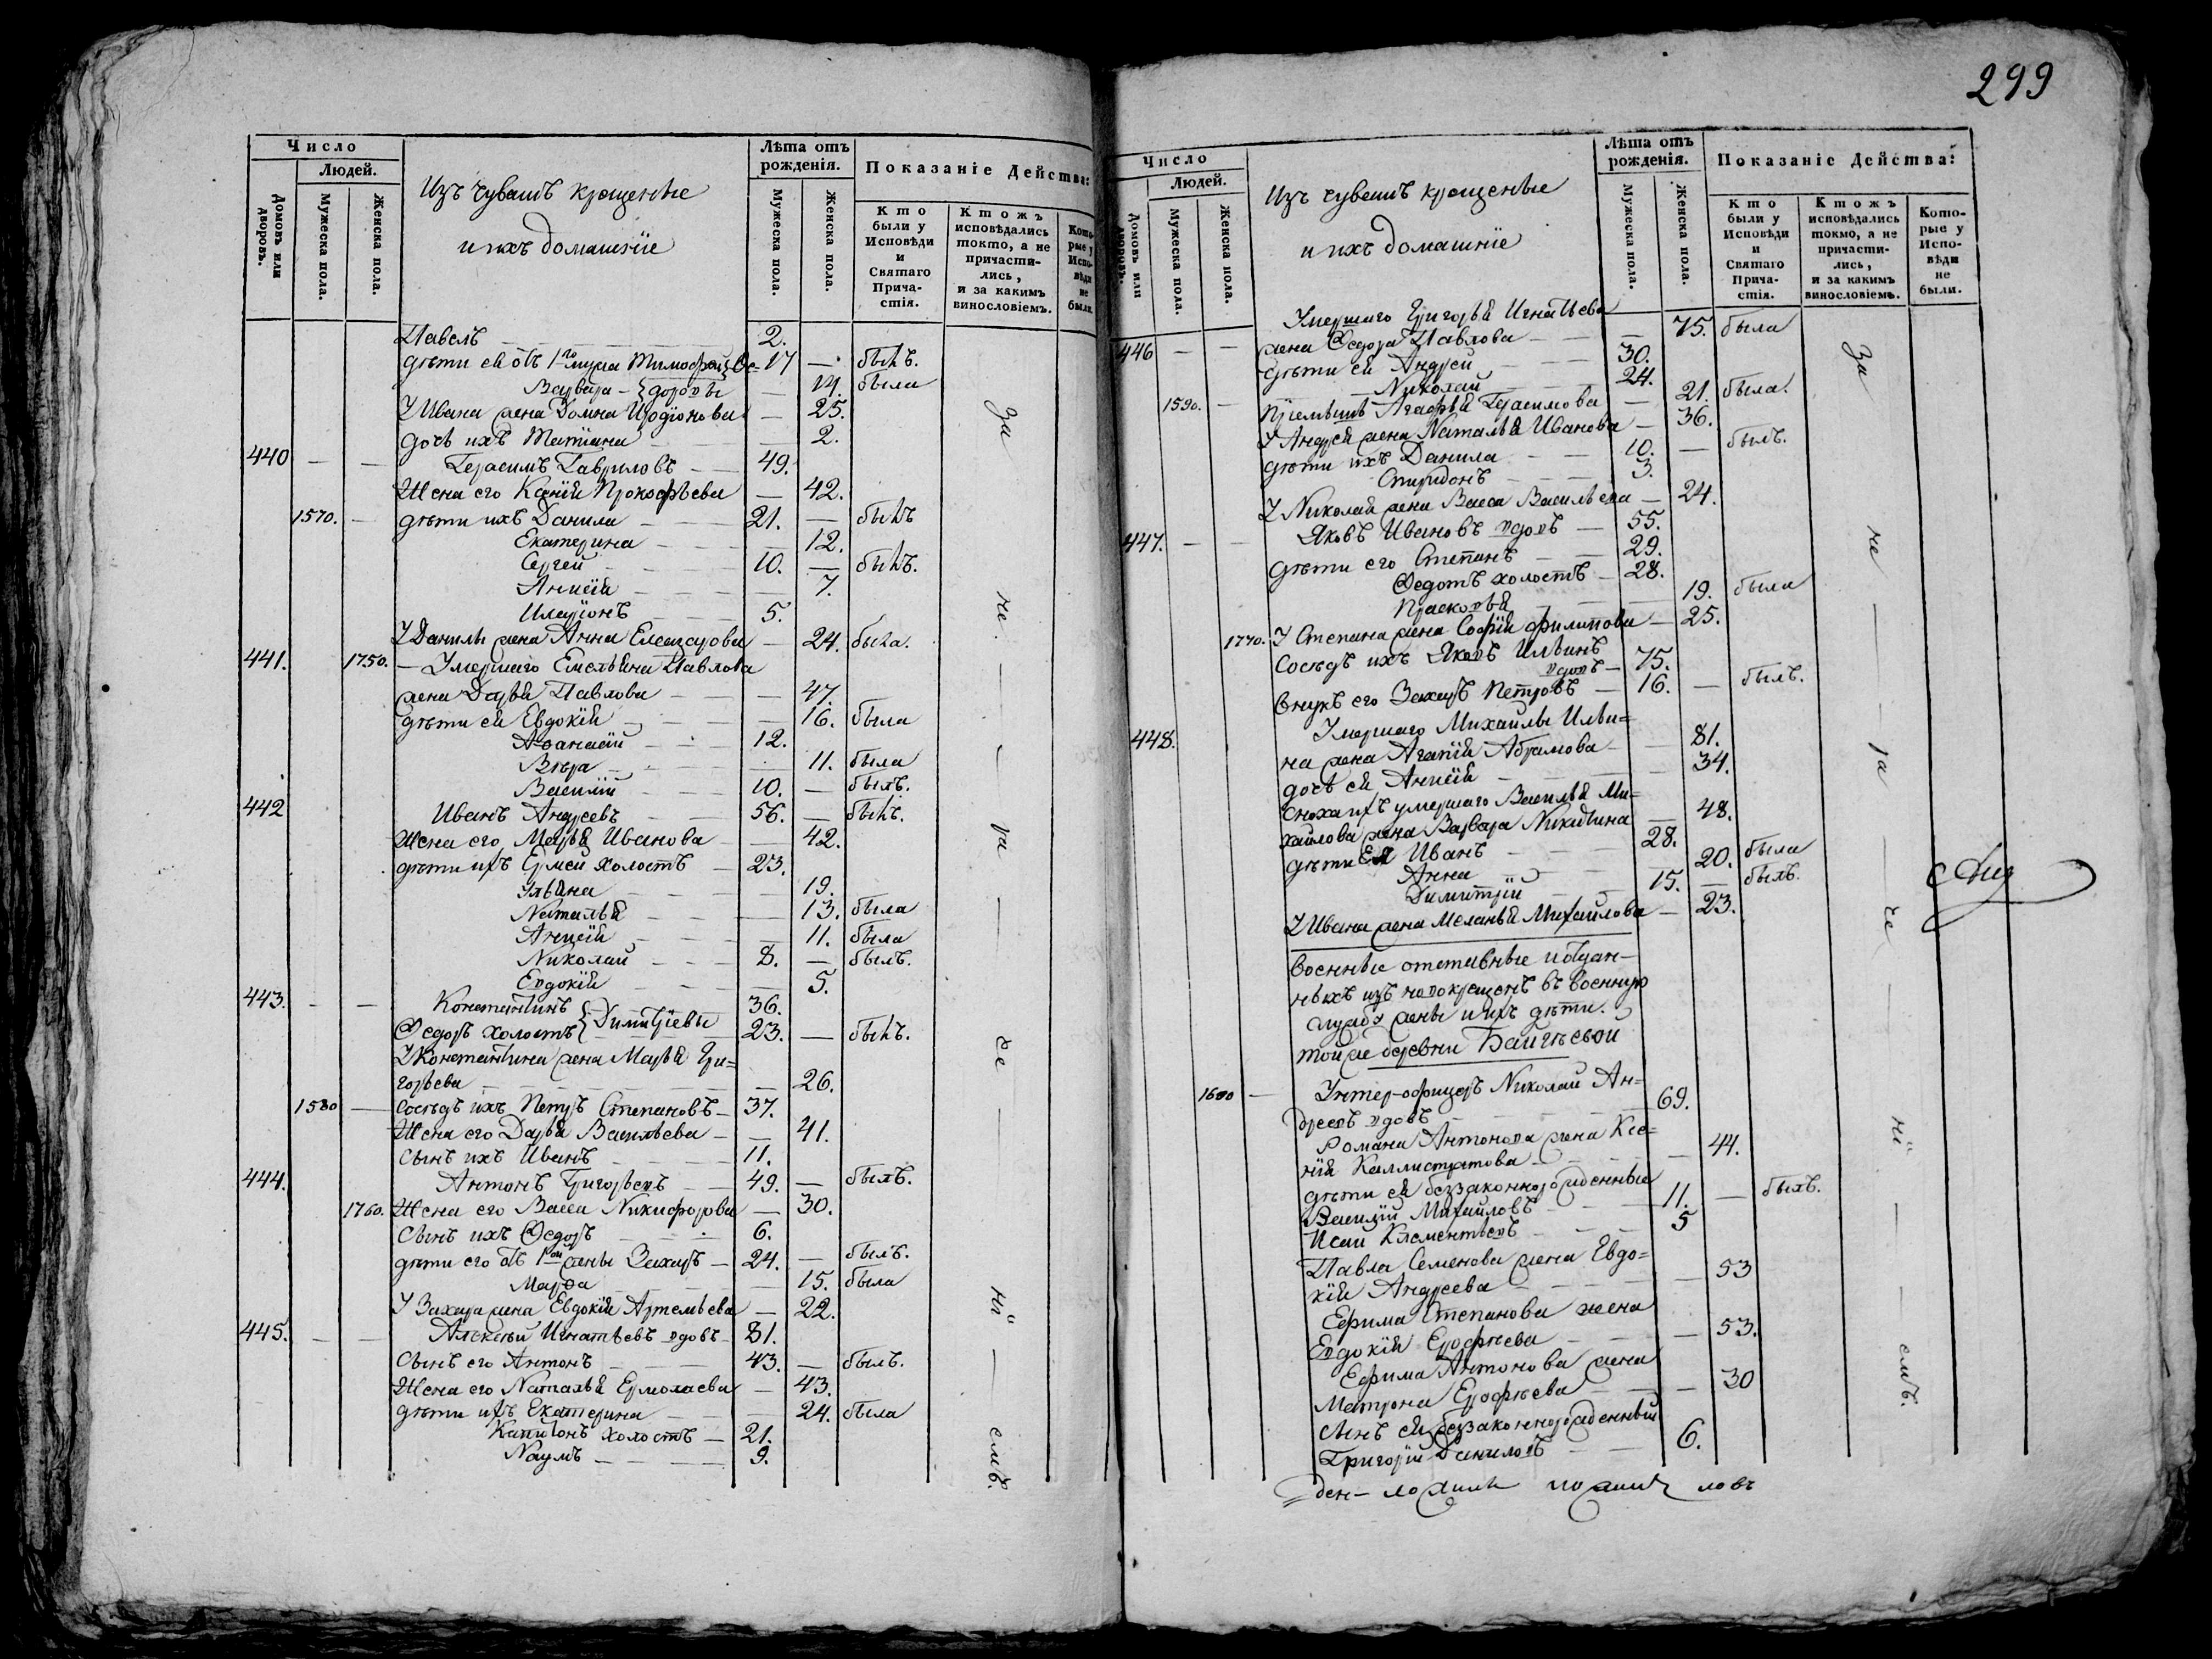 299
Число
Людей.
Домовъ или дворовъ.
Мужеска пола.
Женска пола.
Изъ чувашъ крещеные
и ихъ домашніе
Лѣта отъ рожденія.
Мужеска пола.
Женска пола.
Показаніе Действа:
Кто были у Исповѣди и Святаго Причастія.
Ктожъ исповѣдались токмо, а не причастились, и за какимъ винословіемъ.
Которые у Исповѣди не были.
Павелъ 2.
дѣти ея отъ 1го мужа Тимофей Ѳе= 17 — былъ.
Варвара — доровы — 14. была
У Ивана жена Домна Иродіонова — 25.
дочь ихъ Татіана — 2.
440 — — Герасимъ Гавриловъ — 49.
Жена его Ксенія Прокофьева — 42.
1570. — дѣти ихъ Данила — 21. — былъ
Екатерина — 12.
Сергей — 10. — былъ.
Анисія — 7.
Иларіонъ 5.
У Данилы жена Анна Елеазарова — 24. была.
441. 1750. — Умершаго Емельяна Павлова
жена Дарья Павлова — 47.
дѣти ея Евдокія — 16. была
Аѳанасій — 12.
Вѣра — 11. была
Василій — 10. — былъ.
442 Иванъ Андреевъ — 56. — былъ.
Жена его Марья Иванова — 42.
дѣти ихъ Ермей холостъ — 23.
Ульяна — 19.
Наталья — 13. была
Анисія — 11. была
Николай — 8. — былъ.
Евдокія — 5.
443. — — Константинъ 36.
Ѳедоръ холостъ } Димитріевы 23. — былъ.
У Константина жена Марья Гри=
горьева — 26.
1580 — Сосѣдъ ихъ Петръ Степановъ — 37.
Жена его Дарья Васильева — 41.
Сынъ ихъ Иванъ 11.
444. Антонъ Григорьевъ — 49. — былъ.
1760. Жена его Васса Никифорова — 30.
Сынъ ихъ Ѳедоръ 6.
дѣти его отъ 1ой жены Захаръ — 24. — былъ.
Марѳа — 15. была
У Захара жена Евдокія Артемьева — 22.
445. — — Алексѣй Игнатьевъ вдовъ — 81.
Сынъ его Антонъ — 43. — былъ.
Жена его Наталья Ермолаева — 43.
дѣти ихъ Екатерина — 24. была
Капитонъ холостъ — 21.
Наумъ — 9.
За не ра че ні емъ.
Число
Людей.
Домовъ или дворовъ.
Мужеска пола.
Женска пола.
Изъ чувашъ крещеные
и ихъ домашніе
Лѣта отъ рожденія.
Мужеска пола.
Женска пола.
Показаніе Действа:
Кто были у Исповѣди и Святаго Причастія.
Ктожъ исповѣдались токмо, а не причастились, и за какимъ винословіемъ.
Которые у Исповѣди не были.
Умершаго Григорья Игнатьева
446 — — жена Ѳедора Павлова — 75. была
дѣти ея Андрей — 30.
Николай — 24.
1590. — Пріемышъ Агафья Герасимова — 21. была.
У Андрея жена Наталья Иванова — 36.
дѣти ихъ Данила — 10. — былъ.
Спиридонъ — 3.
У Николая жена Васса Васильева — 24.
447. — — Яковъ Ивановъ вдовъ — 55.
дѣти его Степанъ — 29.
Ѳедотъ холостъ — 28.
Прасковья — 19. была
1770. У Степана жена Софія Филипова — 25.
Сосѣдъ ихъ Яковъ Ильинъ
вдовъ — 75.
внукъ его Захаръ Петровъ — 16. — былъ.
448. Умершаго Михайлы Ильи=
на жена Агапія Абрамова — 81.
дочь ея Анисія — 34.
Сноха ихъ умершаго Василья Ми=
хайлова жена Варвара Никитина — 48.
дѣти Ея Иванъ — 28.
Анна — 20. была
Димитрій — 15. — былъ.
У Ивана жена Меланья Михайлова — 23.
Военные отставные и отдан-
ныхъ изъ новокрещенъ въ военную
службу жены и ихъ дѣти.
той же деревни Байгѣевой
1600 — Унтер-офицеръ Николай Ан=
дреевъ вдовъ — 69.
Романа Антонова жена Ксе=
нія Каллистратова — 44.
дѣти ея беззаконнорожденные
Василій Михайловъ — 11. — былъ.
Исай Клементьевъ — 5
Павла Семенова жена Евдо=
кія Андреева — 53
Ефима Степанова жена
Евдокія Ерофѣева — 53.
Ефима Антонова жена
Матрона Ерофѣева — 30
Сынъ ея беззаконнорожденный
Григорій Даниловъ — 6.
За не ра че ні емъ.